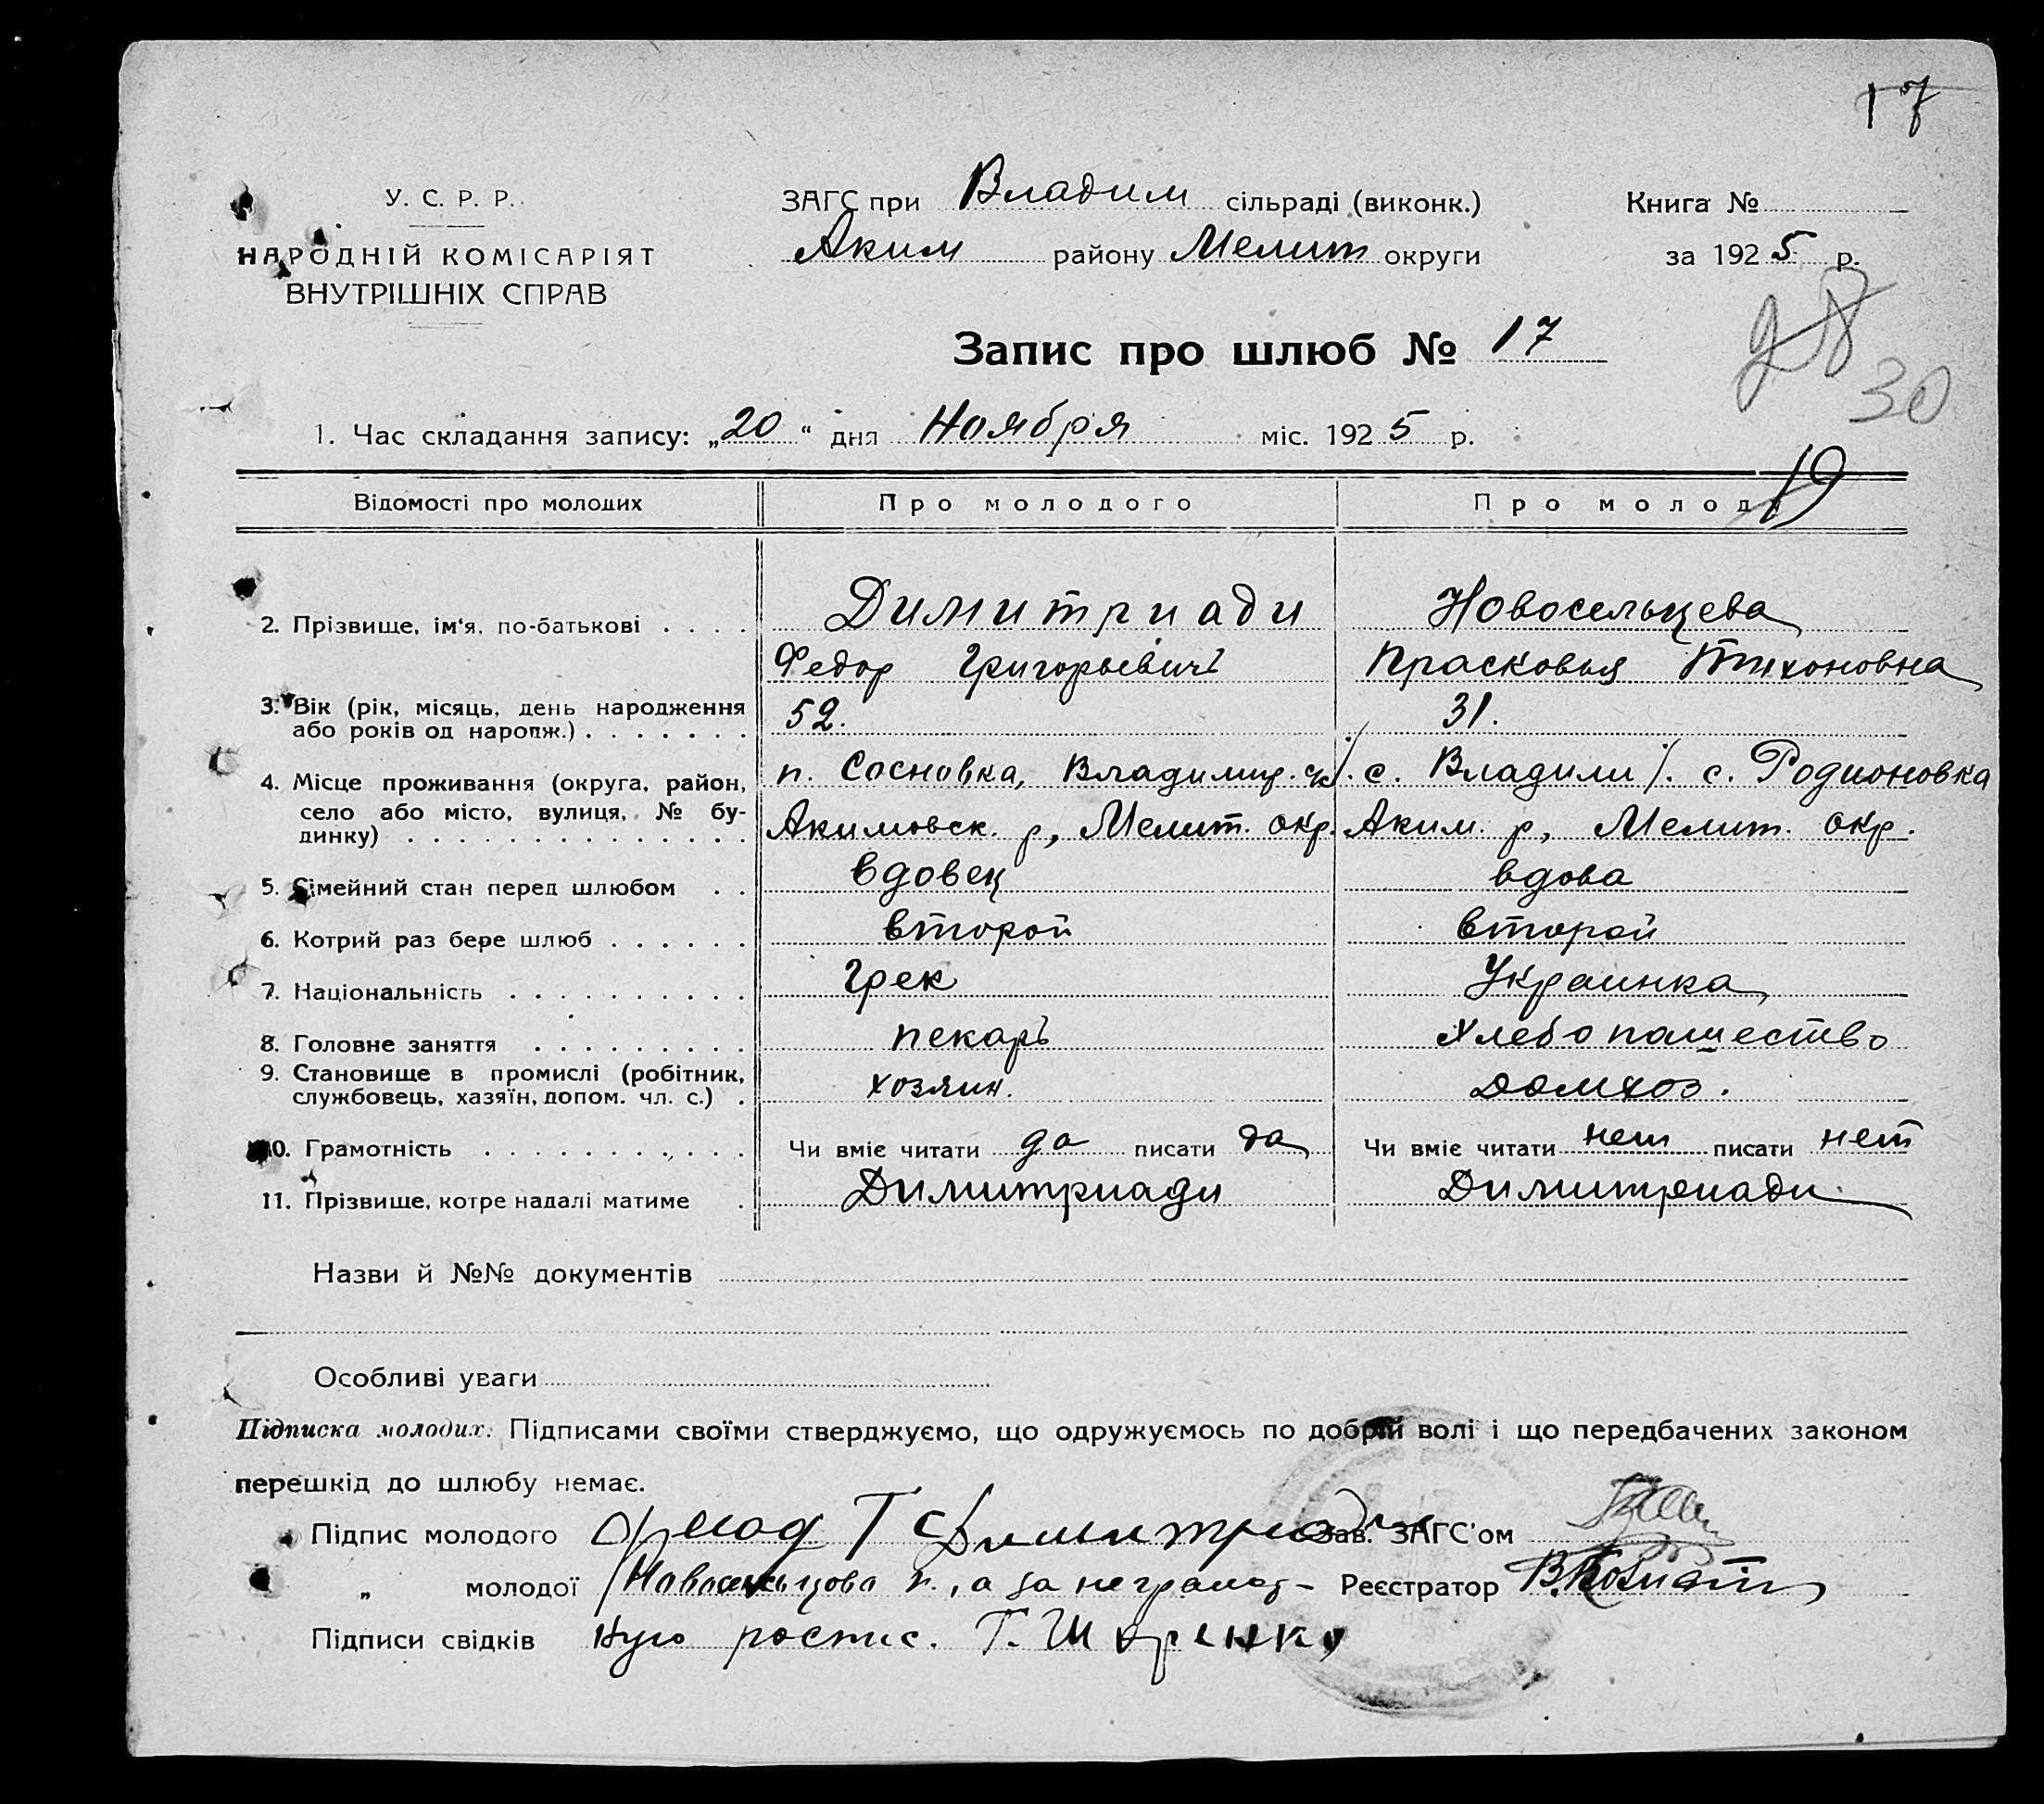 17
У. С. Р. Р.
НАРОДНІЙ КОМІСАРІЯТ
ВНУТРІШНІХ СПРАВ
ЗАГС при Владим сільраді (виконк.)
Аким району Мелит округи
Книга №
за 1925 р.
Запис про шлюб № 17
30
1. Час складання запису: „20“ дня Ноября міс. 1925 р.
19
Відомості про молодих Про молодого Про молод
2. Прізвище, ім'я, по-батькові . . . . Димитриади Новосельцева
Федор Григорьевичъ Прасковья Тихоновна
3. Вік (рік, місяць, день народження
або років од наропж.) . . . . . . . 52. 31.
4. Місце проживання (округа, район, п. Сосновка, Владимир. с. Владим с. Родионовка
село або місто, вулиця, № бу-
динку) . . . . . . . . . . . . . . Акимовск. р, Мелит. окр. Аким. р, Мелит. окр.
5. Сімейний стан перед шлюбом . . вдовец вдова
6. Котрий раз бере шлюб . . . . . . второй второй
7. Національність . . . . . . . . . . Грек Украинка
8. Головне заняття . . . . . . . . . пекаръ Хлебопашество
9. Становище в промислі (робітник,
службовець, хазяїн, допом. чл. с.) . хозяин. домхоз.
10. Грамотність . . . . . . . . . . . . Чи вміє читати да писати да Чи вміє читати нет писати нет
11. Прізвище, котре надалі матиме . Димитриади Димитриади
Назви й №№ документів
Особливі уваги
Підписка молодих: Підписами своїми стверджуємо, що одружуємось по добрій волі і що передбачених законом
перешкід до шлюбу немає.
Підпис молодого Г Димитриади Зав. ЗАГС'ом
„ молодої Новосельцова п., а за неграмот- Реєстратор
Підписи свідків ную роспис. Т.